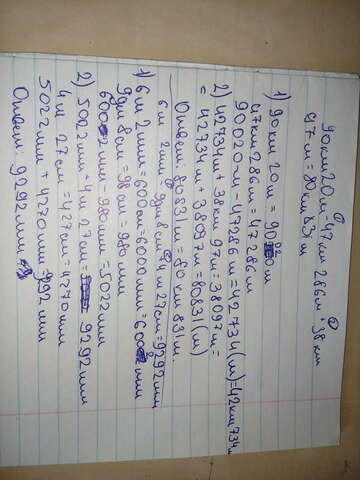 90км 20м - 47км 286м + 38км
97м = 80км 831м
1) 90км 20м = 90020м
47км 286м = 47286м
90020м - 47286м = 42734(м) = 42км 734м
2) 42734м + 38км 97м = 38097м =
= 42734м + 38097м = 80831(м)
Ответ: 80831м = 80км 831м.
6м 2мм - 9дм 8см + 4м 27см = 9292мм
1) 6м 2мм = 600см = 6000мм = 6002мм
9дм 8см = 98см = 980мм
6002мм - 980мм = 5022мм
2) 5022мм + 4м 27см = 9292мм
4м 27см = 427см = 4270мм
5022мм + 4270мм = 9292мм
Ответ: 9292мм